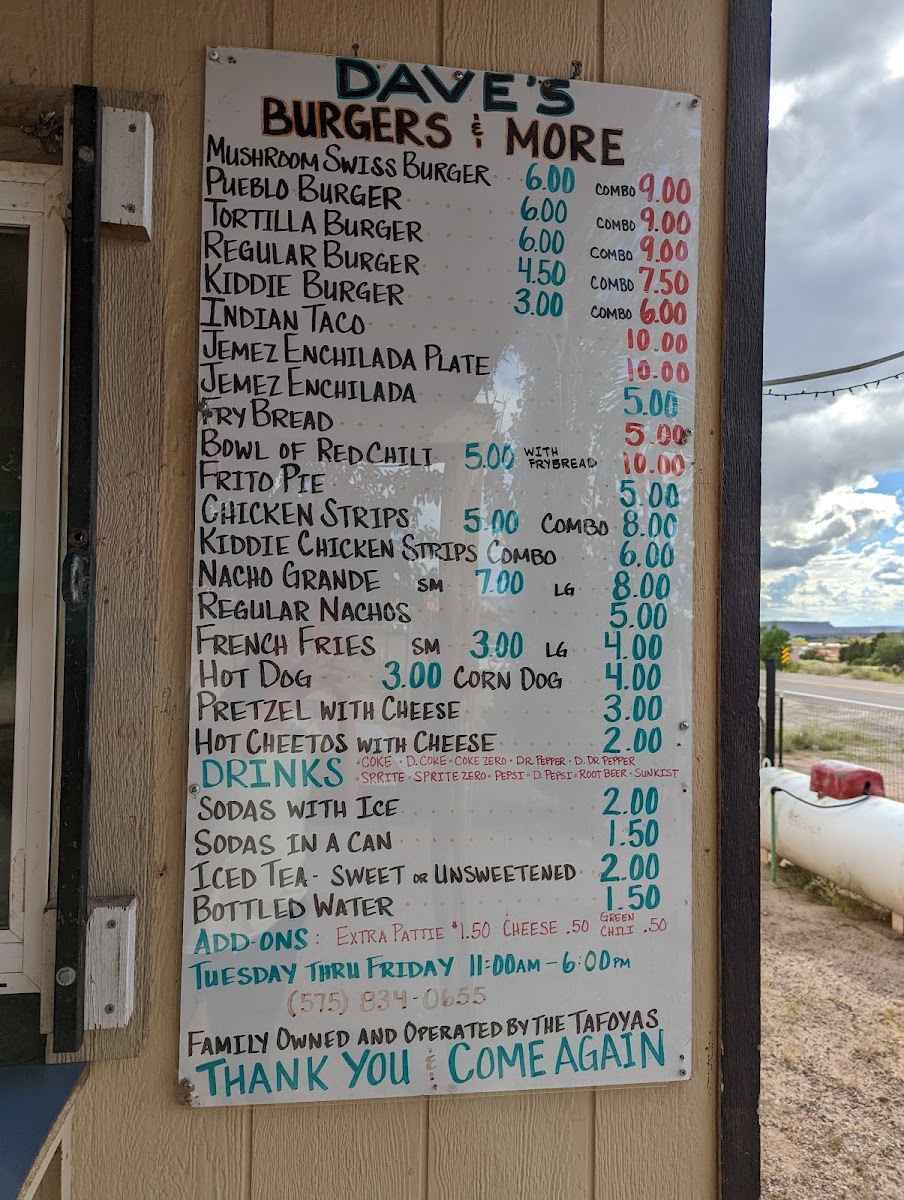 DAVE'S
BURGERS & MORE
MUSHROOM SWISS BURGER 6.00 COMBO 9.00
PUEBLO BURGER 6.00 COMBO 9.00
TORTILLA BURGER 6.00 COMBO 9.00
REGULAR BURGER 4.50 COMBO 7.50
KIDDIE BURGER 3.00 COMBO 6.00
INDIAN TACO 10.00
JEMEZ ENCHILADA PLATE 10.00
JEMEZ ENCHILADA 5.00
FRY BREAD 5.00
BOWL OF RED CHILI 5.00 WITH FRYBREAD 10.00
FRITO PIE 5.00
CHICKEN STRIPS 5.00 COMBO 8.00
KIDDIE CHICKEN STRIPS COMBO 6.00
NACHO GRANDE SM 7.00 LG 8.00
REGULAR NACHOS 5.00
FRENCH FRIES SM 3.00 LG 4.00
HOT DOG 3.00 CORN DOG 4.00
PRETZEL WITH CHEESE 3.00
HOT CHEETOS WITH CHEESE 2.00
DRINKS • COKE • D. COKE • COKE ZERO • DR. PEPPER • D. DR PEPPER
• SPRITE • SPRITE ZERO • PEPSI • D. PEPSI • ROOT BEER • SUNKIST
SODAS WITH ICE 2.00
SODAS IN A CAN 1.50
ICED TEA - SWEET OR UNSWEETENED 2.00
BOTTLED WATER 1.50
ADD-ONS: EXTRA PATTIE $1.50 CHEESE .50 GREEN CHILI .50
TUESDAY THRU FRIDAY 11:00AM - 6:00PM
(575) 834-0655
FAMILY OWNED AND OPERATED BY THE TAFOYAS
THANK YOU & COME AGAIN